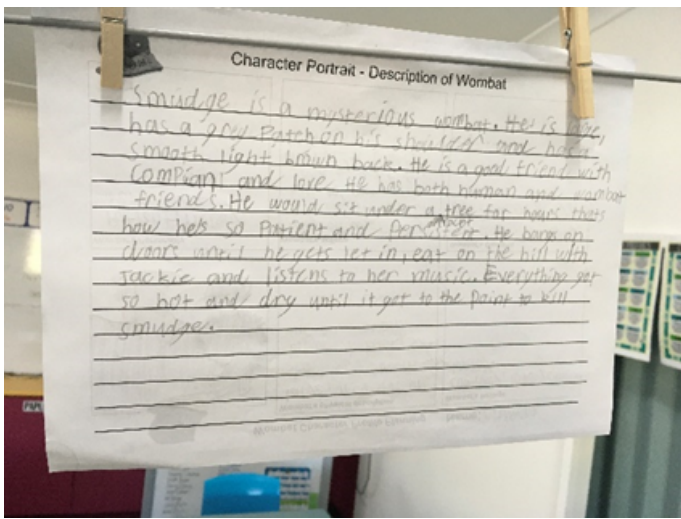 Character Portrait - Description of Wombat
Smudge is a mysterious wombat. He is
has a grey Patch on his shoulder and has a
smooth light brown back. He is a good friend with
and love He has both human and wombat
friends. He would sit under a tree for hours thats
how he's so Patient and Persistent. He bangs on
doors until he gets let in, eat on the hill with
Jackie and listens to her music. Everything got
so hot and dry until it got to the Point to kill
smudge.